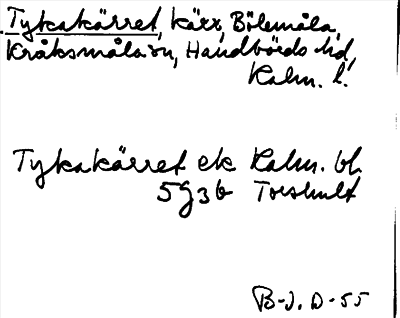 Tykakärret, kärr, Bölemåla,
Kråksmåla sn, Handbörds hd,
Kalm. l.
Tykakärret ek Kalm. bl.
5g3b Toeshult
B-J. D-55